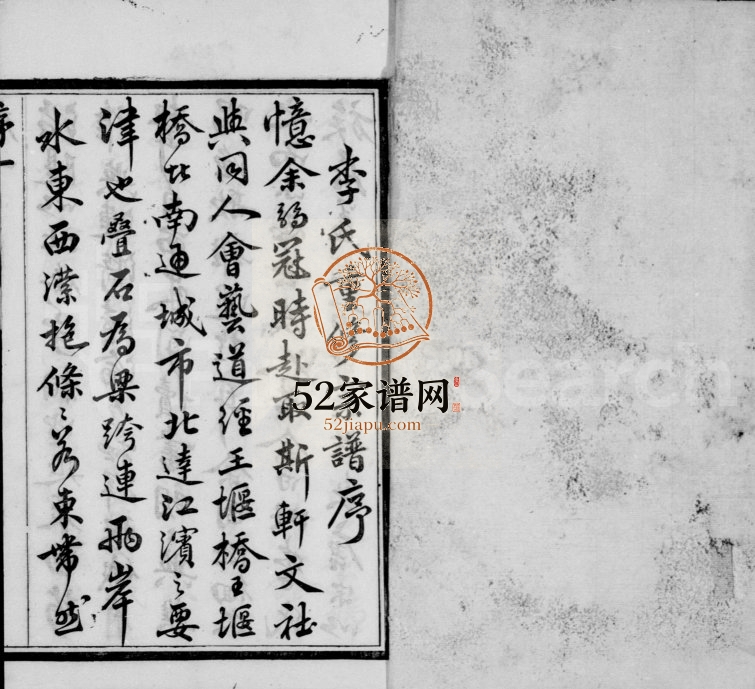 李氏重修宗譜序
憶余弱冠時赴取斯軒文社
與同人會藝道經王堰橋王堰
橋北南通城市北達江濱之要
津也疊石為梁跨連兩岸
水東西瀠抱條〻若東帶然
序一
52家谱网
52jiapu.com